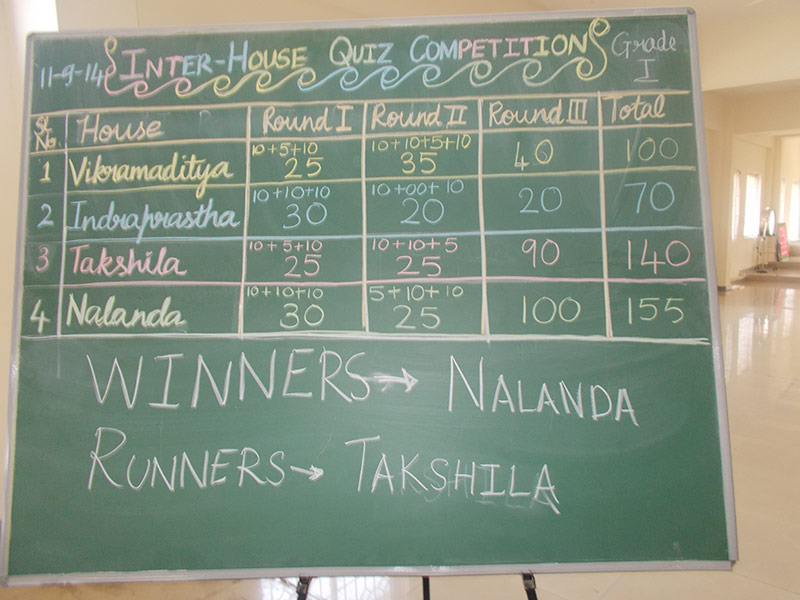 11-9-14 INTER-HOUSE QUIZ COMPETITION Grade I
Sl. No. House Round I Round II Round III Total
1 Vikramaditya 10+5+10 25 10+10+5+10 35 40 100
2 Indraprastha 10+10+10 30 10+00+10 20 20 70
3 Takshila 10+5+10 25 10+10+5 25 90 140
4 Nalanda 10+10+10 30 5+10+10 25 100 155
WINNERS → NALANDA
RUNNERS → TAKSHILA